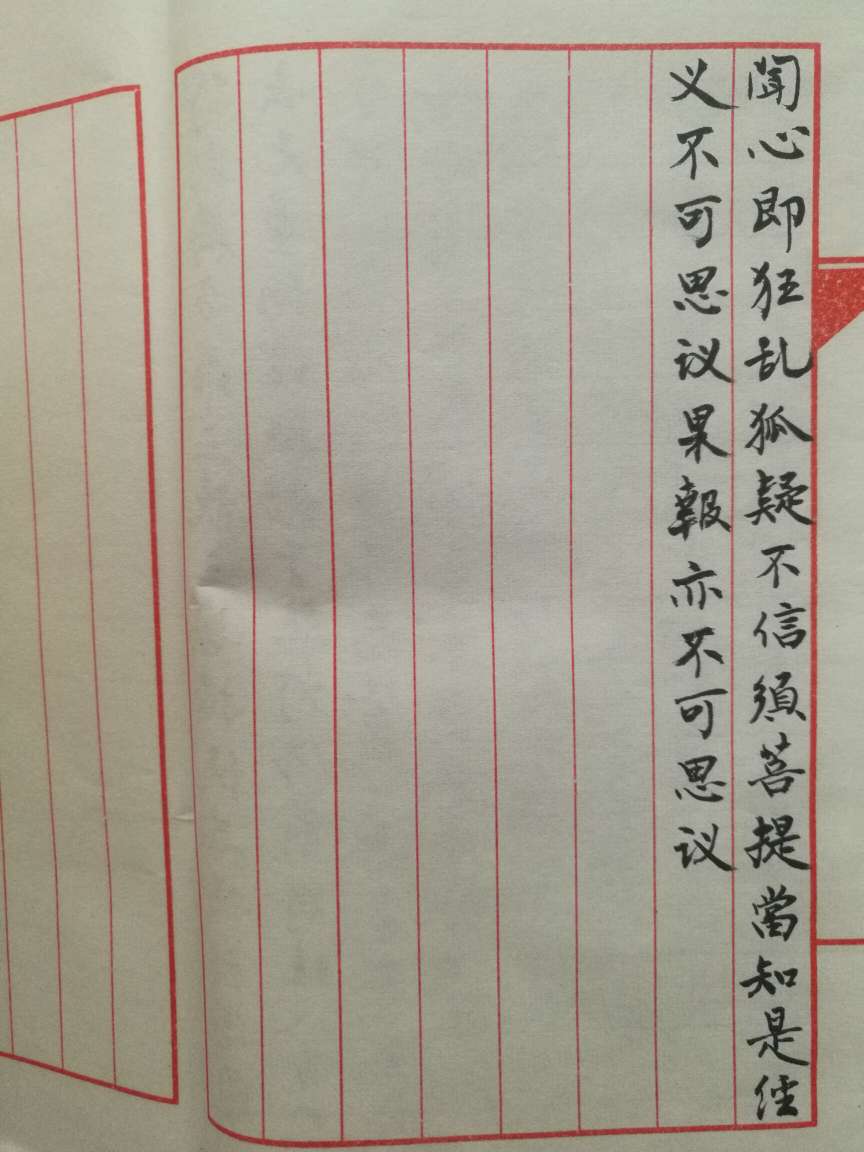 聞心即狂乱狐疑不信須菩提當知是经
义不可思议果報亦不可思议